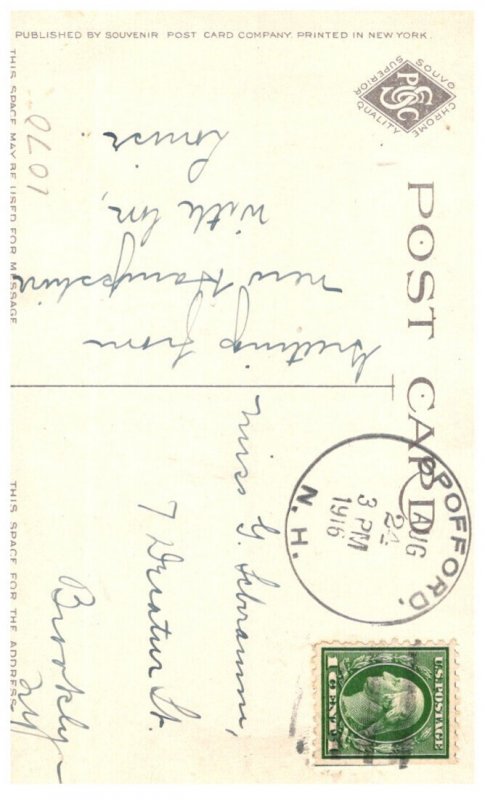 PUBLISHED BY SOUVENIR POST CARD COMPANY. PRINTED IN NEW YORK.
SOUVO CHROME
SUPERIOR QUALITY
PSCC
POST CARD
THIS SPACE MAY BE USED FOR MESSAGE
0701
Greetings from
New Hampshire
with love,
Louise
THIS SPACE FOR THE ADDRESS
Miss G. Schramm,
7 Decatur St.
Brooklyn
NY
SPOFFORD,
AUG
24
3 PM
1916
N.H.
U.S. POSTAGE
1 CENT 1